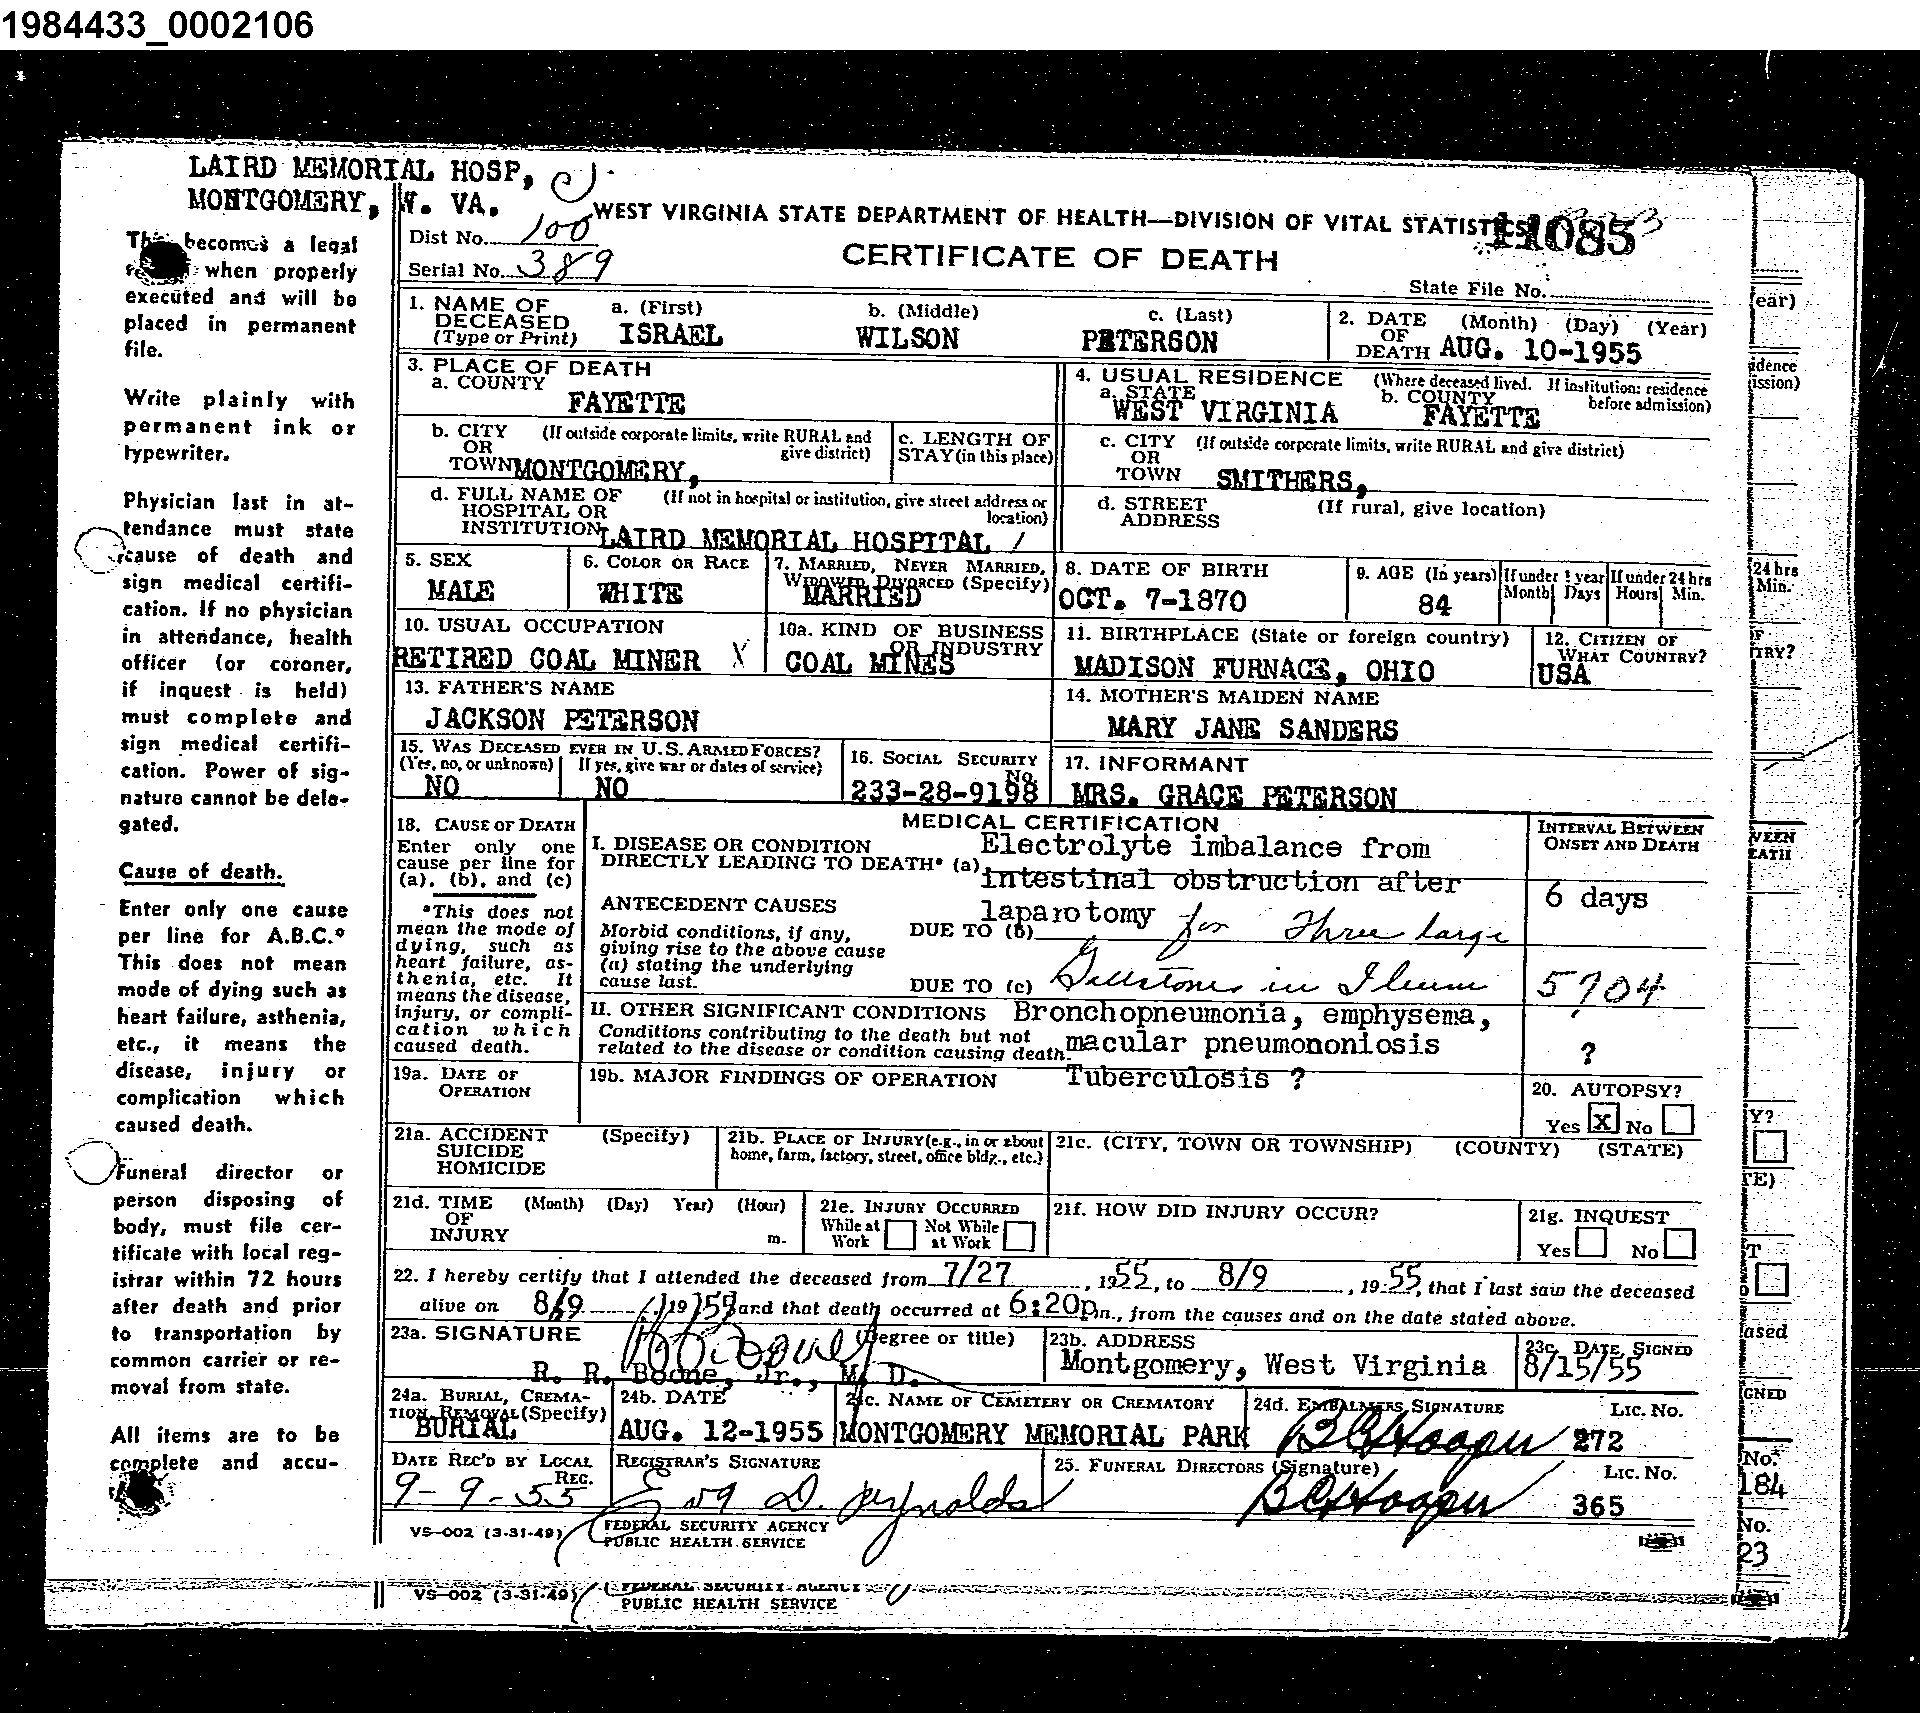 1984433_0002106
LAIRD MEMORIAL HOSP,
MONTGOMERY, W. VA.
becomes a legal
when properly
executed and will be
placed in permanent
file.
Write plainly with
permanent ink or
typewriter.
Physician last in at-
tendance must state
cause of death and
sign medical certifi-
cation. If no physician
in attendance, health
officer (or coroner,
if inquest is held)
must complete and
sign medical certifi-
cation. Power of sig-
nature cannot be dele-
gated.
Cause of death.
Enter only one cause
per line for A.B.C.*
This does not mean
mode of dying such as
heart failure, asthenia,
etc., it means the
disease, injury or
complication which
caused death.
Funeral director or
person disposing of
body, must file cer-
tificate with local reg-
istrar within 72 hours
after death and prior
to transportation by
common carrier or re-
moval from state.
All items are to be
complete and accu-
WEST VIRGINIA STATE DEPARTMENT OF HEALTH—DIVISION OF VITAL STATISTICS
11085
Dist No. 100
CERTIFICATE OF DEATH
Serial No. 389
State File No.
1. NAME OF DECEASED (Type or Print) a. (First) b. (Middle) c. (Last)
ISRAEL WILSON PETERSON
2. DATE OF DEATH (Month) (Day) (Year)
AUG. 10-1955
3. PLACE OF DEATH
a. COUNTY
FAYETTE
4. USUAL RESIDENCE (Where deceased lived. If institution: residence before admission)
a. STATE b. COUNTY
WEST VIRGINIA FAYETTE
b. CITY OR TOWN (If outside corporate limits, write RURAL and give district)
MONTGOMERY,
c. LENGTH OF STAY (in this place)
c. CITY OR TOWN (If outside corporate limits, write RURAL and give district)
SMITHERS,
d. FULL NAME OF HOSPITAL OR INSTITUTION (If not in hospital or institution, give street address or location)
LAIRD MEMORIAL HOSPITAL /
d. STREET ADDRESS (If rural, give location)
5. SEX
MALE
6. COLOR OR RACE
WHITE
7. MARRIED, NEVER MARRIED, WIDOWED, DIVORCED (Specify)
MARRIED
8. DATE OF BIRTH
OCT. 7-1870
9. AGE (In years)
84
If under 1 year
Month Days
If under 24 hrs
Hours Min.
10. USUAL OCCUPATION
RETIRED COAL MINER X
10a. KIND OF BUSINESS OR INDUSTRY
COAL MINES
11. BIRTHPLACE (State or foreign country)
MADISON FURNACE, OHIO
12. CITIZEN OF WHAT COUNTRY?
USA
13. FATHER'S NAME
JACKSON PETERSON
14. MOTHER'S MAIDEN NAME
MARY JANE SANDERS
15. WAS DECEASED EVER IN U.S. ARMED FORCES?
(Yes, no, or unknown) If yes, give war or dates of service)
NO NO
16. SOCIAL SECURITY No.
233-28-9198
17. INFORMANT
MRS. GRACE PETERSON
18. CAUSE OF DEATH
Enter only one
cause per line for
(a), (b), and (c)
*This does not
mean the mode of
dying, such as
heart failure, as-
thenia, etc. It
means the disease,
injury, or compli-
cation which
caused death.
MEDICAL CERTIFICATION
I. DISEASE OR CONDITION
DIRECTLY LEADING TO DEATH* (a)
Electrolyte imbalance from
intestinal obstruction after
laparotomy for three large
Gallstones in Ileum
ANTECEDENT CAUSES
Morbid conditions, if any,
giving rise to the above cause
(a) stating the underlying
cause last.
DUE TO (b)
DUE TO (c)
INTERVAL BETWEEN
ONSET AND DEATH
6 days
5704
II. OTHER SIGNIFICANT CONDITIONS
Conditions contributing to the death but not
related to the disease or condition causing death.
Bronchopneumonia, emphysema,
macular pneumononiosis
?
Tuberculosis ?
19a. DATE OF OPERATION
19b. MAJOR FINDINGS OF OPERATION
20. AUTOPSY?
Yes X No
21a. ACCIDENT SUICIDE HOMICIDE (Specify)
21b. PLACE OF INJURY (e.g., in or about home, farm, factory, street, office bldg., etc.)
21c. (CITY, TOWN OR TOWNSHIP) (COUNTY) (STATE)
21d. TIME OF INJURY (Month) (Day) Year) (Hour) m.
21e. INJURY OCCURRED
While at Work Not While at Work
21f. HOW DID INJURY OCCUR?
21g. INQUEST
Yes No
22. I hereby certify that I attended the deceased from 7/27, 1955, to 8/9, 1955, that I last saw the deceased
alive on 8/9 1955 and that death occurred at 6:20p m., from the causes and on the date stated above.
23a. SIGNATURE (Degree or title)
R. R. Boone, Jr., M. D.
23b. ADDRESS
Montgomery, West Virginia
23c. DATE SIGNED
8/15/55
24a. BURIAL, CREMA-
TION REMOVAL (Specify)
BURIAL
24b. DATE
AUG. 12-1955
24c. NAME OF CEMETERY OR CREMATORY
MONTGOMERY MEMORIAL PARK
24d. EMBALMERS SIGNATURE LIC. NO.
B C Hooper 272
DATE REC'D BY LOCAL REG.
9-9-55
REGISTRAR'S SIGNATURE
Eva D. Reynolds
25. FUNERAL DIRECTORS (Signature) LIC. NO.
B C Hooper 365
VS-002 (3-31-49)
FEDERAL SECURITY AGENCY
PUBLIC HEALTH SERVICE
VS-002 (3-31-49)
FEDERAL SECURITY AGENCY
PUBLIC HEALTH SERVICE
ear)
idence
ission)
24 hrs
Min.
TRY?
VEEN
EATH
Y?
TE)
T
ased
GNED
No.
184
No.
23